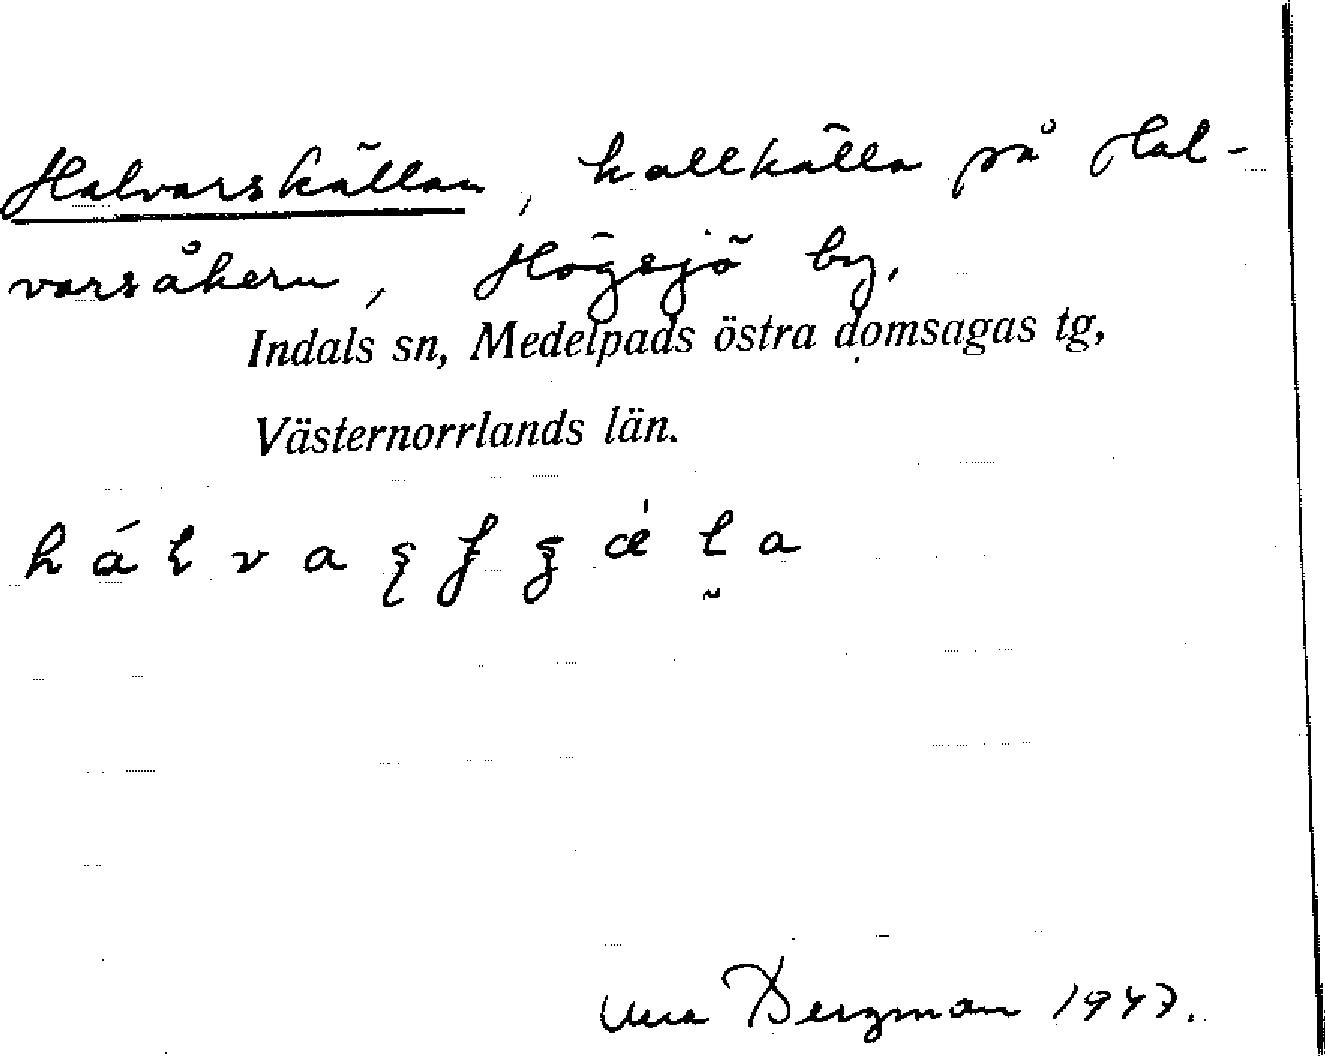 Halvarskällan, kallkälla på Hal-
varsåkern, Högsjö by,
Indals sn, Medelpads östra domsagas tg,
Västernorrlands län.
Bergman 1947.